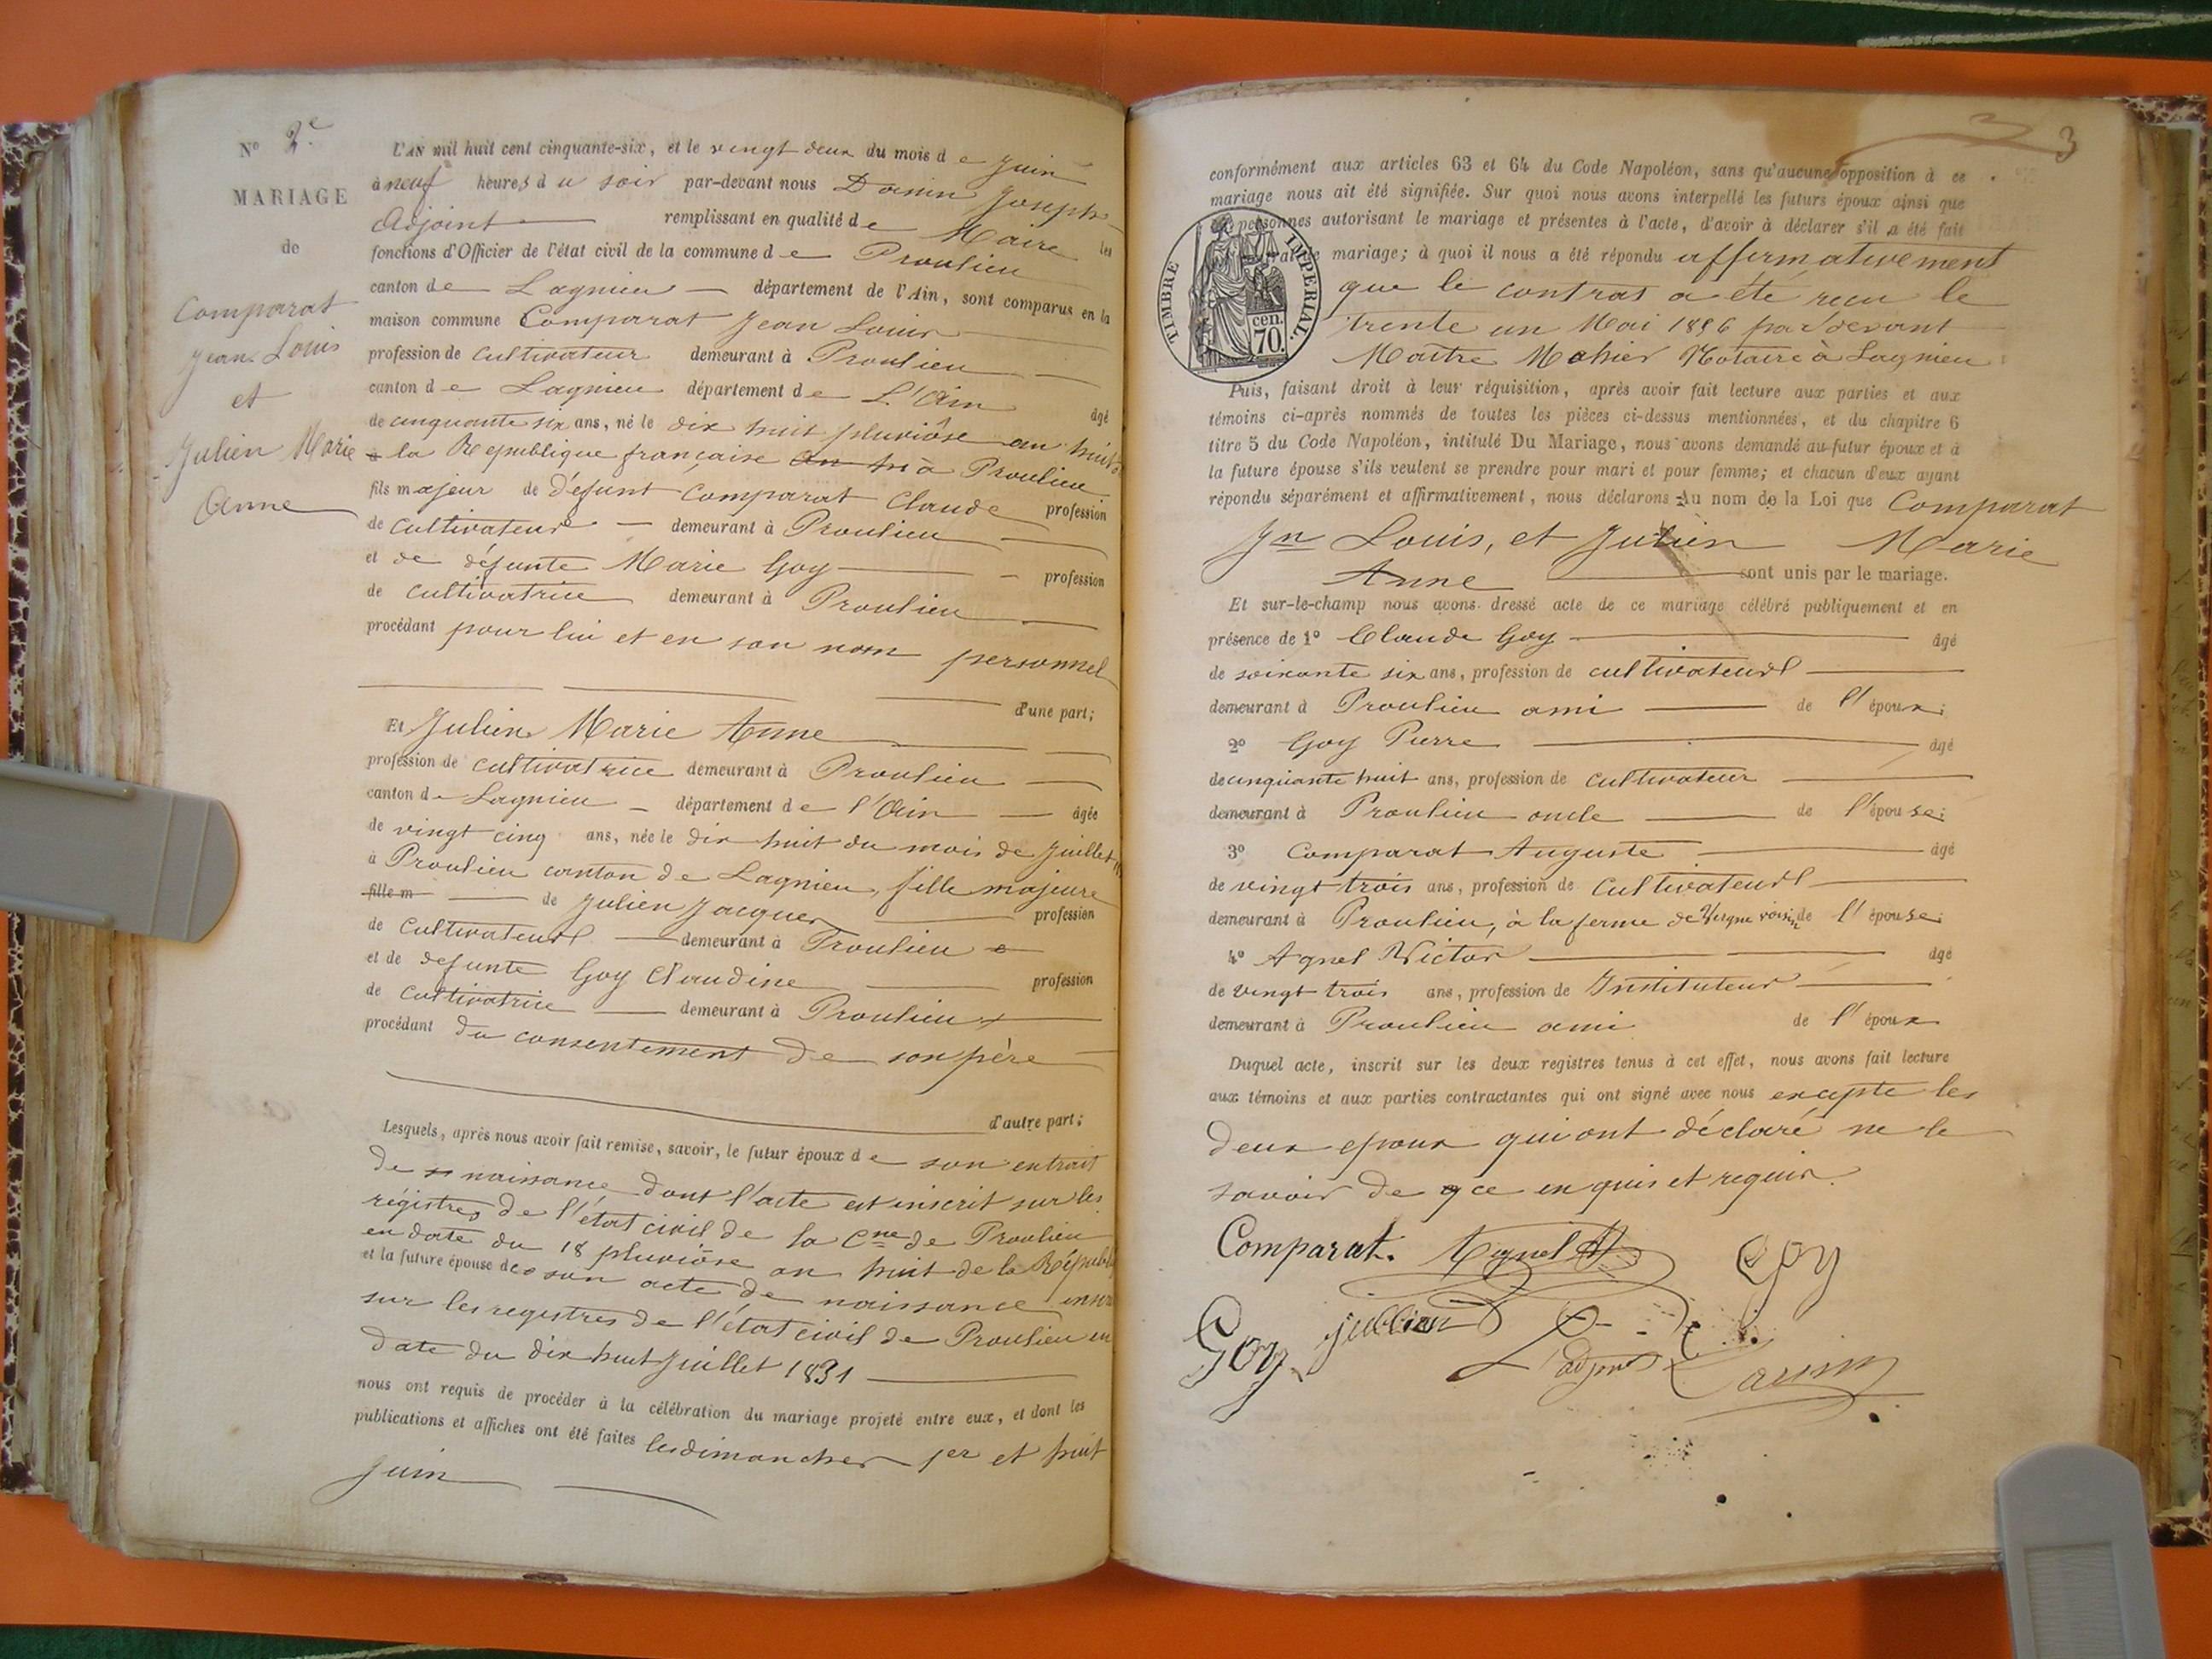 N° 2e
MARIAGE
de
Comparat
Jean Louis
et
Julien Marie
Anne
L'AN mil huit cent cinquante-six, et le vingt deux du mois de Juin
à neuf heures du soir par-devant nous Joseph
Adjoint remplissant en qualité de Maire les
fonctions d'Officier de l'état civil de la commune de Proulieu
canton de Lagnieu département de l'Ain, sont comparus en la
maison commune Comparat Jean Louis
profession de cultivateur demeurant à Proulieu
canton de Lagnieu département de L'Ain âgé
de cinquante six ans, né le dix huit pluviôse an huit
de la République française à Proulieu
fils majeur de défunt Comparat Claude profession
de cultivateur demeurant à Proulieu
et de défunte Marie Goy profession
de cultivatrice demeurant à Proulieu
procédant pour lui et en son nom personnel
d'une part;
Et Julien Marie Anne
profession de cultivatrice demeurant à Proulieu
canton de Lagnieu département de l'Ain âgée
de vingt cinq ans, née le dix huit du mois de Juillet
à Proulieu canton de Lagnieu, fille majeure
fille m de Julien Jacques profession
de cultivateur demeurant à Proulieu
et de defunte Goy Claudine profession
de cultivatrice demeurant à Proulieu
procédant du consentement de son père
d'autre part;
Lesquels, après nous avoir fait remise, savoir, le futur époux de son extrait
de naissance dont l'acte est inscrit sur les
régistres de l'état civil de la Cne de Proulieu
en date du 18 pluviôse an huit de la Républ
et la future épouse de son acte de naissance inscr
sur les registres de l'état civil de Proulieu en
date du dix huit Juillet 1831
nous ont requis de procéder à la célébration du mariage projeté entre eux, et dont les
publications et affiches ont été faites les dimanches 1er et huit
Juin
3
conformément aux articles 63 et 64 du Code Napoléon, sans qu'aucune opposition à ce
mariage nous ait été signifiée. Sur quoi nous avons interpellé les futurs époux ainsi que
les personnes autorisant le mariage et présentes à l'acte, d'avoir à déclarer s'il a été fait
mariage; à quoi il nous a été répondu affirmativement
que le contrat a été reçu le
trente un Mai 1856 par devant
Maître Notaire à Lagnieu
TIMBRE IMPERIAL.
70 cen.
Puis, faisant droit à leur réquisition, après avoir fait lecture aux parties et aux
témoins ci-après nommés de toutes les pièces ci-dessus mentionnées, et du chapitre 6
titre 5 du Code Napoléon, intitulé Du Mariage, nous avons demandé au futur époux et à
la future épouse s'ils veulent se prendre pour mari et pour femme; et chacun d'eux ayant
répondu séparément et affirmativement, nous déclarons Au nom de la Loi que Comparat
Jn Louis, et Julien Marie
Anne sont unis par le mariage.
Et sur-le-champ nous avons dressé acte de ce mariage célébré publiquement et en
présence de 1° Claude Goy âgé
de soixante six ans, profession de cultivateur
demeurant à Proulieu ami de l'époux;
2° Goy Pierre âgé
de cinquante huit ans, profession de cultivateur
demeurant à Proulieu oncle de l'épouse;
3° Comparat Auguste âgé
de vingt trois ans, profession de Cultivateur
demeurant à Proulieu, à la ferme de voisin de l'épouse;
4° Agnel Victor âgé
de vingt trois ans, profession de Instituteur
demeurant à Proulieu ami de l'époux
Duquel acte, inscrit sur les deux registres tenus à cet effet, nous avons fait lecture
aux témoins et aux parties contractantes qui ont signé avec nous excepté les
deux epoux qui ont déclaré ne le
savoir de ce enquis et requis.
Comparat. Agnel Goy
Goy jullien
L'adjoint